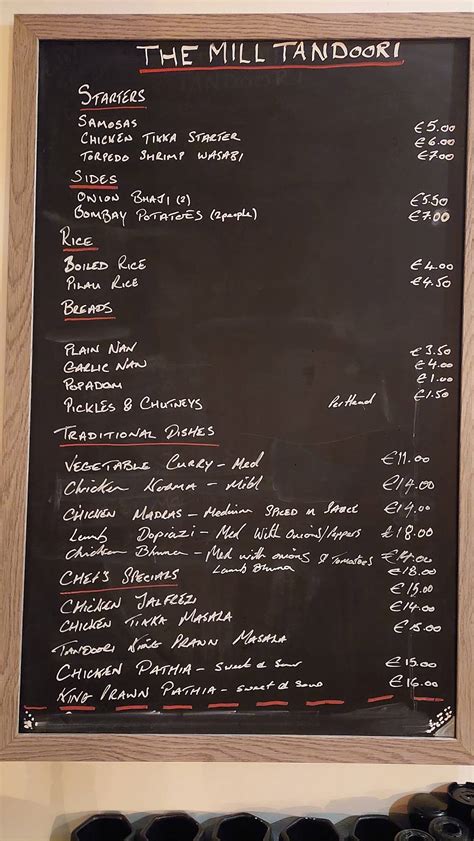 THE MILL TANDOORI
STARTERS
SAMOSAS €5.00
CHICKEN TIKKA STARTER €6.00
TORPEDO SHRIMP WASABI €7.00
SIDES
ONION BHAJI (2) €5.50
BOMBAY POTATOES (2people) €7.00
RICE
BOILED RICE €4.00
PILAU RICE €4.50
BREADS
PLAIN NAN €3.50
GARLIC NAN €4.00
POPADOM €1.00
PICKLES & CHUTNEYS Per Head €1.50
TRADITIONAL DISHES
VEGETABLE CURRY - Med €11.00
Chicken Korma - Mild €14.00
CHICKEN MADRAS - Medium SPICED IN SAUCE €14.00
Lamb Dopiazi - Med With Onions/Peppers €18.00
Chicken Bhuna - Med with onions & Tomatoes €14.00
Lamb Bhuna €18.00
CHEFS SPECIALS
CHICKEN JALFREZI €15.00
CHICKEN TIKKA MASALA €14.00
TANDOORI KING PRAWN MASALA €15.00
CHICKEN PATHIA - Sweet & Sour €15.00
KING PRAWN PATHIA - Sweet & Sour €16.00